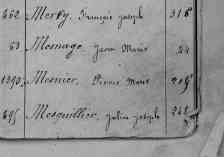 662 Merdy, François Joseph 318
63 Mesnage, Jean Marie 24
1290 Mesnier, Pierre Marie
695 Mesquillier, Julien Joseph